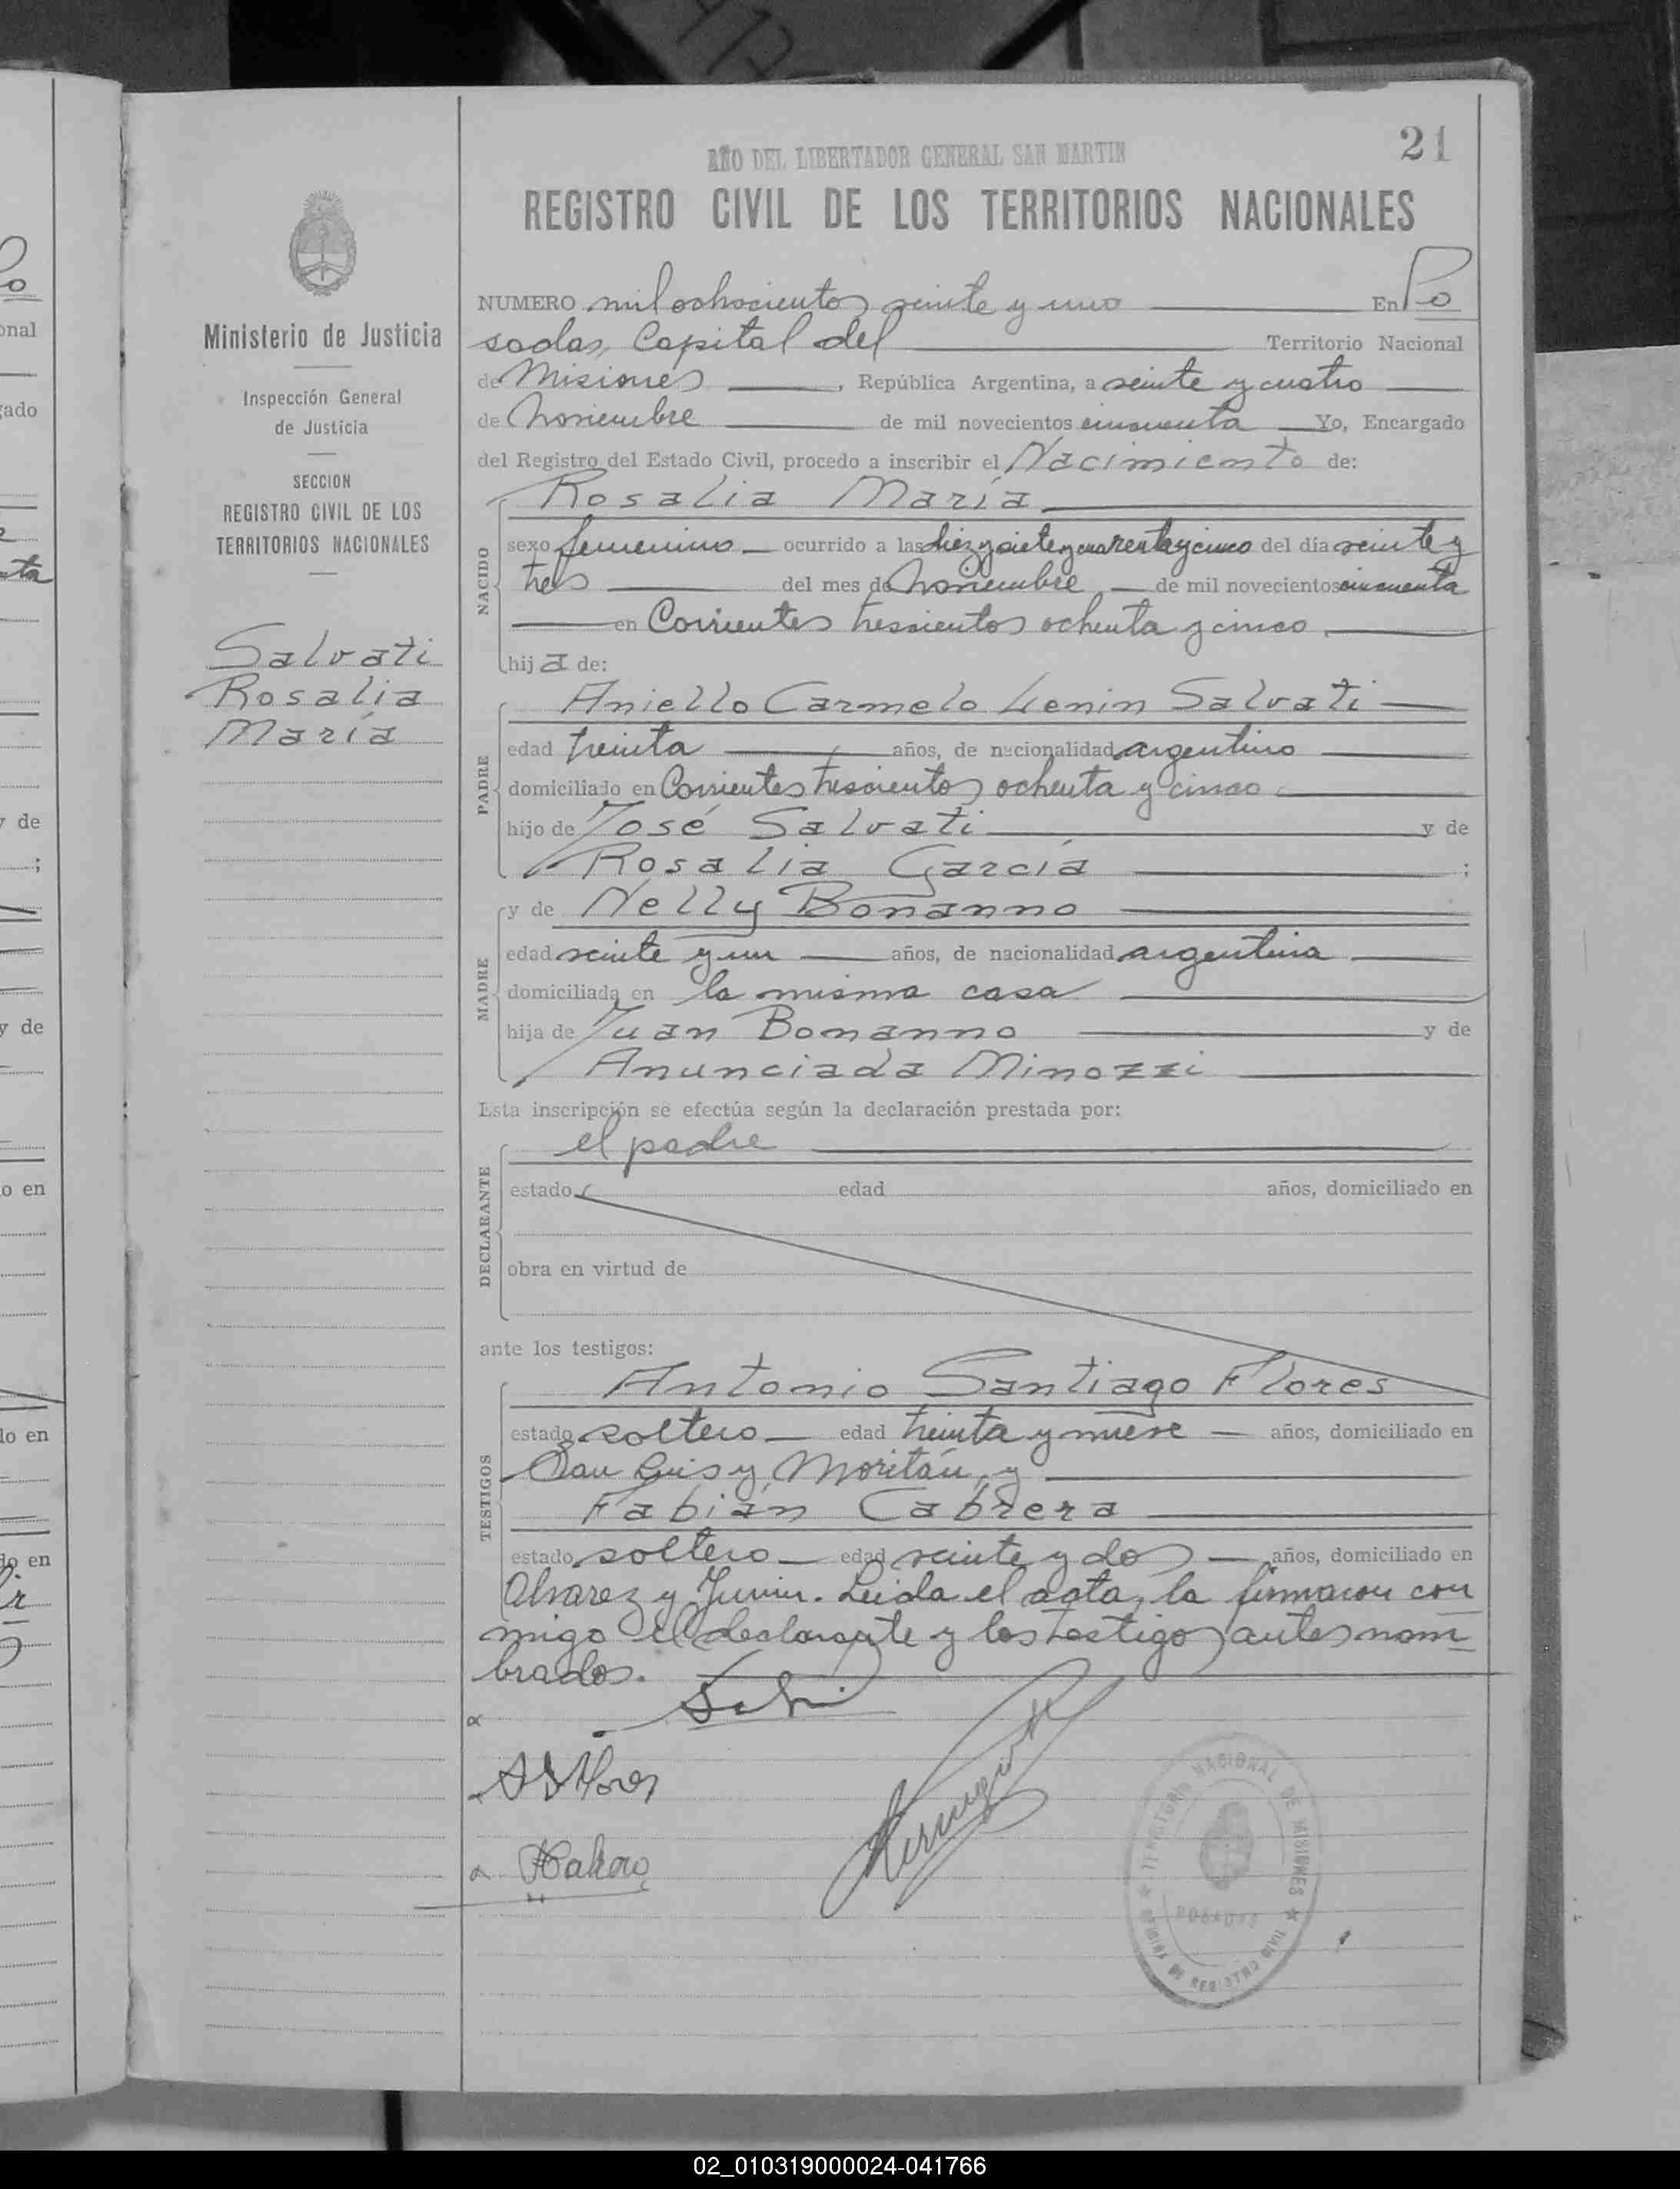 21
AÑO DEL LIBERTADOR GENERAL SAN MARTIN
REGISTRO CIVIL DE LOS TERRITORIOS NACIONALES
Ministerio de Justicia
Inspección General
de Justicia
SECCION
REGISTRO CIVIL DE LOS
TERRITORIOS NACIONALES
Salvati
Rosalia
María
NUMERO mil ochocientos veinte y uno En Po
sadas, Capital del Territorio Nacional
de Misiones, República Argentina, a veinte y cuatro
de Noviembre de mil novecientos cincuenta Yo, Encargado
del Registro del Estado Civil, procedo a inscribir el Nacimiento de:
Rosalia María
NACIDO
sexo femenino ocurrido a las diez y siete y cuarenta y cinco del día veinte y
tres del mes de Noviembre de mil novecientos cincuenta
en Corrientes trescientos ochenta y cinco
hija de:
PADRE
Aniello Carmelo Lenin Salvati
edad treinta años, de nacionalidad argentino
domiciliado en Corrientes trescientos ochenta y cinco
hijo de José Salvati y de
Rosalia García ;
MADRE
y de Nelly Bonanno
edad veinte y un años, de nacionalidad argentina
domiciliada en la misma casa
hija de Juan Bonanno y de
Anunciada Minozzi
Esta inscripción se efectúa según la declaración prestada por:
DECLARANTE
el padre
estado edad años, domiciliado en
obra en virtud de
ante los testigos:
TESTIGOS
Antonio Santiago Flores
estado soltero edad treinta y nueve años, domiciliado en
San Luis y Moritán, y
Fabián Cabrera
estado soltero edad veinte y dos años, domiciliado en
Alvarez y Junin. Leida el acta, la firmaron con
migo el declarante y los testigos antes nom
brados.
ASFlores
TERRITORIO NACIONAL DE MISIONES
POSADAS
OFICINA DE REGISTRO CIVIL
02_010319000024-041766